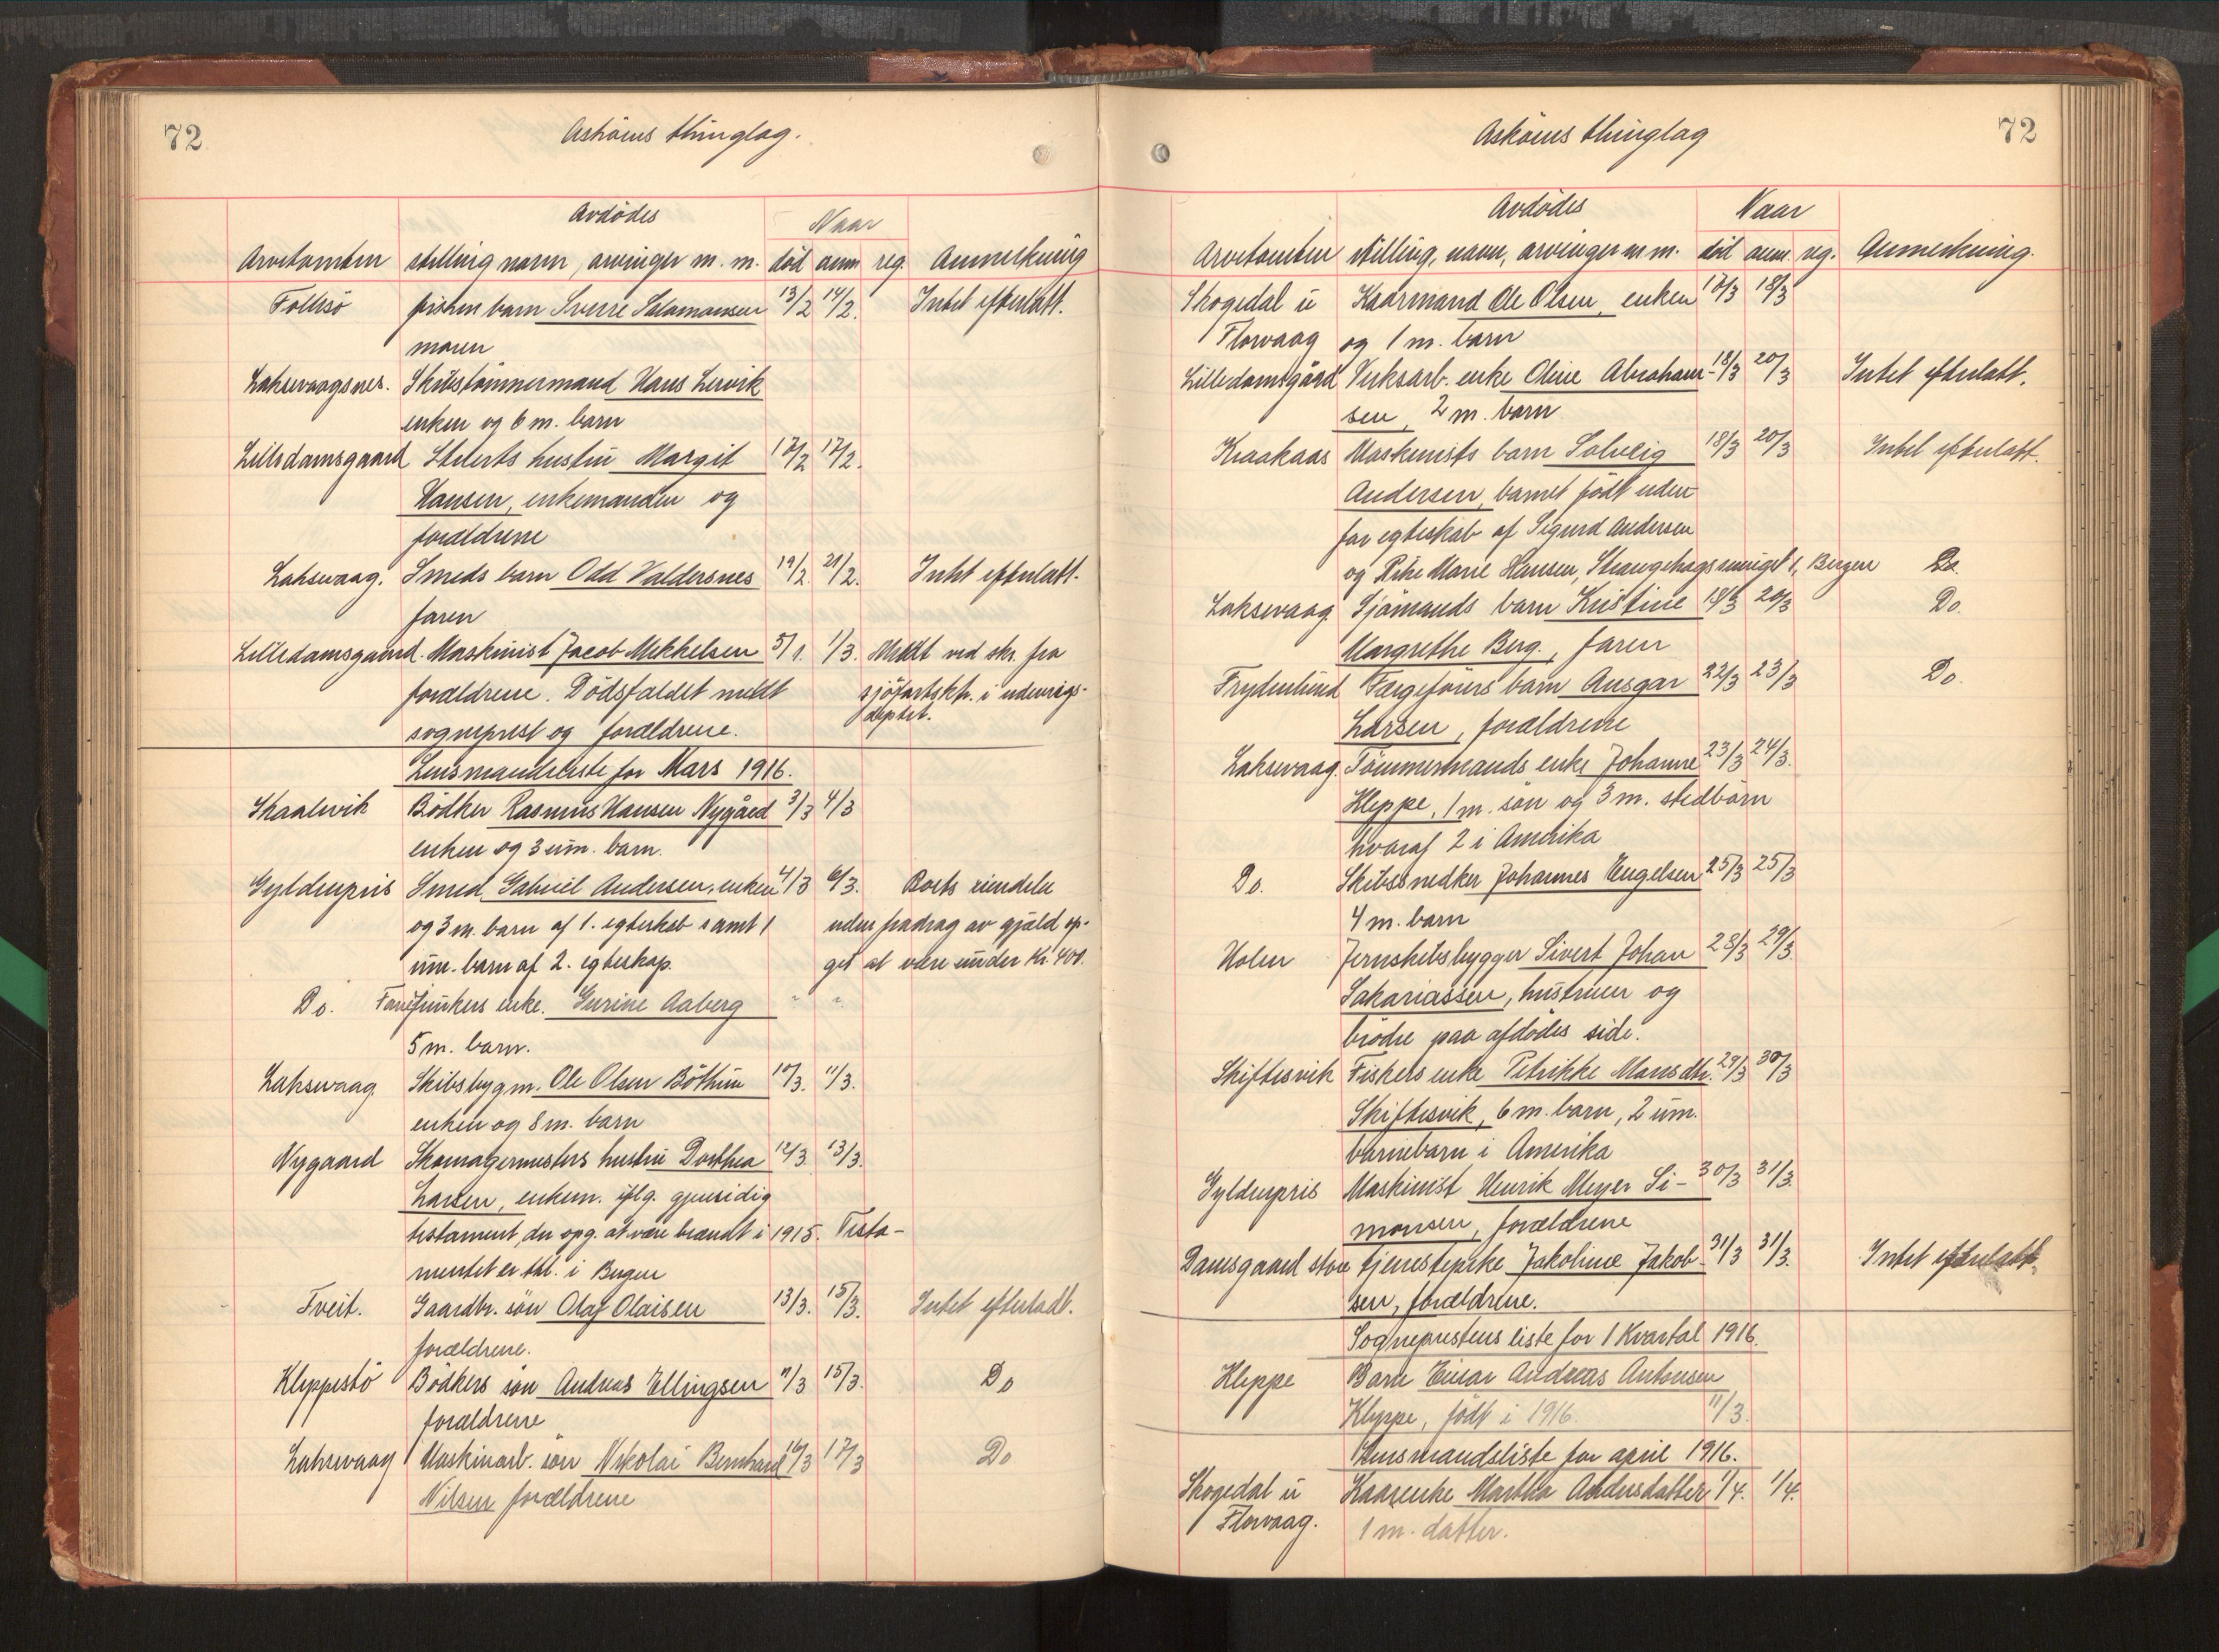 72
Askøens thinglag.
Avdødes
Naar
Arvetomten stilling navn, arvinger m. m. død anm reg. Anmerkning
Follesø fiskers barn Sverre Salamonsen 13/2 14/2. Intet efterlatt.
moren
Laksevaagsnes. Skibstømmermand Hans Lervik
enken og 6 m. barn
Lilledamsgaard Stuerts hustru Margit 17/2 17/2.
Hansen, enkemanden og
forældrene
Laksevaag. Smeds barn Odd Valdersnes 19/2. 21/2. Intet efterlatt.
faren
Lilledamsgaard. Maskinist Jacob Mikkelsen 5/1. 1/3. Meldt ved skr. fra
forældrene. Dødsfaldet meldt sjøfartsktr. i udenrigs-
sogneprest og forældrene. deptet.
Lensmandsliste for Mars 1916.
Skaalevik Bødker Rasmus Hansen Nygård 3/3 4/3
enken og 3 um. barn.
Gyldenpris Smed Gabriel Andersen, enken 4/3 6/3. Boets eiendele
og 3 m. barn af 1. egteskab samt 1 uden fradrag av gjæld op-
um. barn af 2. egteskap. get at være under Kr. 400.
Do. enke. Gurine Aaberg " "
5 m. barn.
Laksevaag. Skibsbygm. Ole Olsen Bøthun 10/3. 11/3.
enken og 8 m. barn
Nygaard Skomagermesters hustru Dorthea 12/3 13/3.
Larsen, enkem. iflg. gjensidig
testament, der opg. at være brændt i 1915. Testa-
mentet er thl. i Bergen
Tveit. Gaardbr. søn Olaf Olaisen 13/3. 15/3. Intet efterladt.
forældrene.
Kleppestø Bødkers søn Andreas Ellingsen 11/3 15/3. Do
forældrene
Laksevaag Maskinarb. søn Nikolai Bernhard 16/3 17/3 Do
Nilsen forældrene
72
Askøens thinglag
Avdødes
Naar
Arvetomten stilling, navn, arvinger m. m. død anm. reg. Anmerkning.
Skogedal u Kaarmand Ole Olsen, enken 17/3 18/3
Florvaag og 1 m. barn
Lilledamsgård Verksarb. enke Oline Abraham- 18/3 20/3 Intet efterlatt.
sen, 2 m. barn
Kraakaas Maskinists barn Solveig 18/3 20/3 Intet efterlatt.
Andersen, barnet født uden-
for egteskab af Sigurd Andersen
og Marie Hansen, Strangehagsmuget 1, Bergen Do.
Laksevaag. Sjømands barn Kristine 18/3 20/3 Do.
Margrethe Berg., faren
Frydenlund Færgeførers barn Ansgar 22/3 23/3 Do.
Larsen, forældrene
Laksevaag. Tømmermands enke Johanne 23/3 24/3.
Kleppe, 1 m. søn og 3 m. stedbørn
hvoraf 2 i Amerika
Do. Skibssnedker Johannes Engelsen 25/3 25/3
4 m. barn
Holen Jernskibsbygger Sivert Johan 28/3 29/3.
Sakariassen, hustruen og
brødre paa afdødes side.
Skiftesvik Fiskers enke Petrikke Monsdtr. 29/3 30/3
Skiftesvik, 6 m. barn, 2 um.
barnebarn i Amerika
Gyldenpris Maskinist Henrik Meyer Si- 30/3 31/3.
monsen, forældrene
Damsgaard store tjenestepike Jakobine Jakob- 31/3 31/3. Intet efterlatt.
sen, forældrene.
Sogneprestens liste for 1 Kvartal 1916.
Kleppe Barn Einar Andreas Antonsen
Kleppe, født i 1916. 11/3.
Lensmandsliste for april 1916.
Skogedal u Kaarenke Martha Andersdatter 1/4. 1/4.
Florvaag. 1 m. datter.